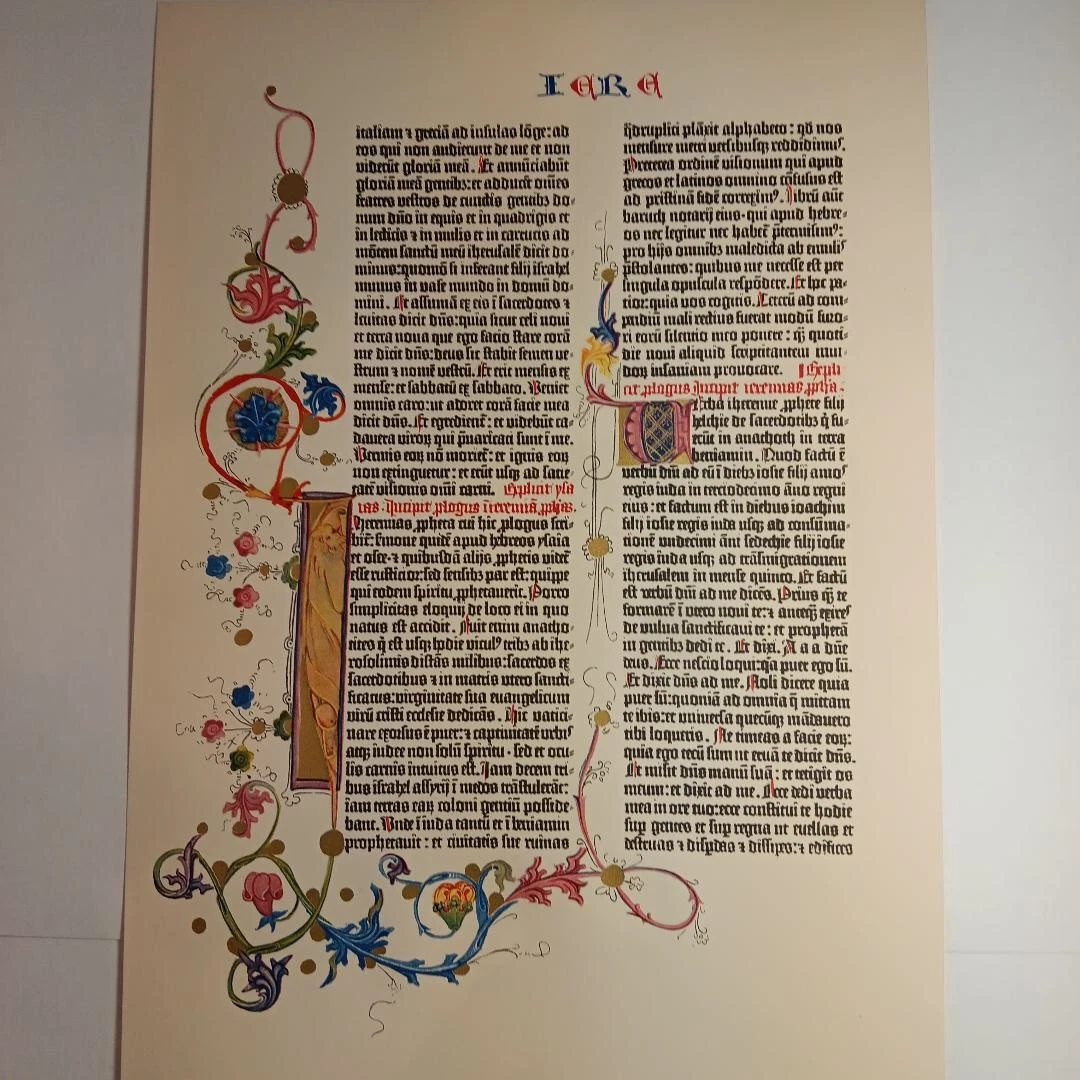 IERE
italiam ⁊ greciā ad insulas lōge: ad
eos qui non audierunt de me et non
viderūt gloriā meā. Et annūciabūt
gloriā meā gentibꝫ: et adducēt om̄es
fratres vestros de cunctis gentibꝫ do-
num dn̄o in equis et in quadrigis et
in lecticis ⁊ in mulis et in carrucis ad
mōtem sanctū meū iherusalē dicit do-
minus: quomō si inferant filij israhel
munus in vase mundo in domū do-
mini. Et assumā ex eis ī sacerdotes ⁊
levitas dicit dn̄s: quia sicut celi noui
et terra noua que ego facio stare corā
me dicit dn̄s: deus sic stabit semen ve-
strum ⁊ nomē vestrū. Et erit mensis ex
mense: et sabbatū ex sabbato. Veniet
omnis caro: ut adoret corā facie mea
dicit dn̄s. Et egredient᷑: et videbūt ca-
dauera viroꝝ qui p̄uaricati sunt ī me.
Vermis eoꝝ nō moriet᷑: et ignis eoꝝ
non extinguetur: et erūt usqꝫ ad sacie-
tatē visionis omī carni. Explicit ysa
ias. Incipit ꝓlogus ī ieremiā ꝓphꝫ.
Iheremias ꝓpheta cui hic ꝓlogus scri-
bit᷑: sermone quidē apud hebreos ysaia
et osee ⁊ quibusdā alijs ꝓphetis videt᷑
esse rusticior: sed sensibꝫ par est: quippe
qui eodem spiritu ꝓphetauerit. Porro
simplicitas eloquij de loco ei in quo
natus est accidit. Fuit enim anatho-
tites q̄ est usqꝫ hodie viculꝰ tribꝫ ab ihe-
rosolimis distās milibus: sacerdos ex
sacerdotibus ⁊ in matris utero sancti-
ficatus: virginitate sua euangelicum
virū cristi ecclesie dedicās. Hic vatici-
nare exorsus ē puer: ⁊ captiuitatē urbiꝰ
atqꝫ iudee non solū spiritu - sed et ocu-
lis carnis intuitus est. Iam decem tri-
bus israhel assyrij ī medos trāstulerāt:
iam terras eaꝝ coloni gentiū posside-
bant. Unde ī iuda tantū et ī beniamin
prophetauit : et ciuitatis sue ruinas
q̄druplici plāxit alphabeto : qd̄ nos
mensure metri versibusqꝫ reddidimuꝰ.
Preterea ordinē visionum qui apud
grecos et latinos omnino cōfusus est
ad pristinā fidē correximꝰ. Librū aūt
baruch notarij eius - qui apud hebre-
os nec legitur nec habet᷑ p̄termisimꝰ:
pro hijs omnibꝫ maledicta ab emuliꝰ
p̄stolantes: quibus me necesse est per
singula opuscula respōdere. Et hec pa-
tior: quia vos cogitis. Ceterū ad com-
pendiū mali rectius fuerat modū furo-
ri eorū silentio meo ponere : q̄ꝫ quoti-
die noui aliquid scriptitantem inui-
doꝝ insaniam prouocare. Expli
cit ꝓlogus Incipit ieremias ꝓpha.
Verba iheremie ꝓphete filij
helchie de sacerdotibꝫ q̄ fu-
erūt in anathoth in terra
beniamin. Quod factū ē
verbū dn̄i ad eū ī diebꝫ iosie filij amoꝰ
regis iuda in terciodecimo āno regni
eius: et factum est in diebus ioachim
filij iosie regis iuda usqꝫ ad consūma-
tionē undecimi ānī sedechie filij iosie
regis iuda usqꝫ ad trāsmigrationem
iherusalem in mense quinto. Et factū
est verbū dn̄i ad me dicēs. Prius q̄ꝫ te
formarē ī utero noui te: ⁊ anteq̄ꝫ exireꝰ
de vulua sanctificaui te : et prophetā
in gentibꝫ dedi te. Et dixi. A a a dn̄e
deus. Ecce nescio loqui: q̄a puer ego sū.
Et dixit dn̄s ad me. Noli dicere quia
puer sū: quoniā ad omnia q̄ mittam
te ibis: et uniuersa quecūqꝫ mādauero
tibi loqueris. Ne timeas a facie eoꝝ:
quia ego tecū sum ut eruā te dicit dn̄s.
Et misit dn̄s manū suā : et tetigit os
meum : et dixit ad me. Ecce dedi verba
mea in ore tuo: ecce constitui te hodie
suꝑ gentes et suꝑ regna ut euellas et
destruas ⁊ disꝑdas ⁊ dissipes: ⁊ edifices